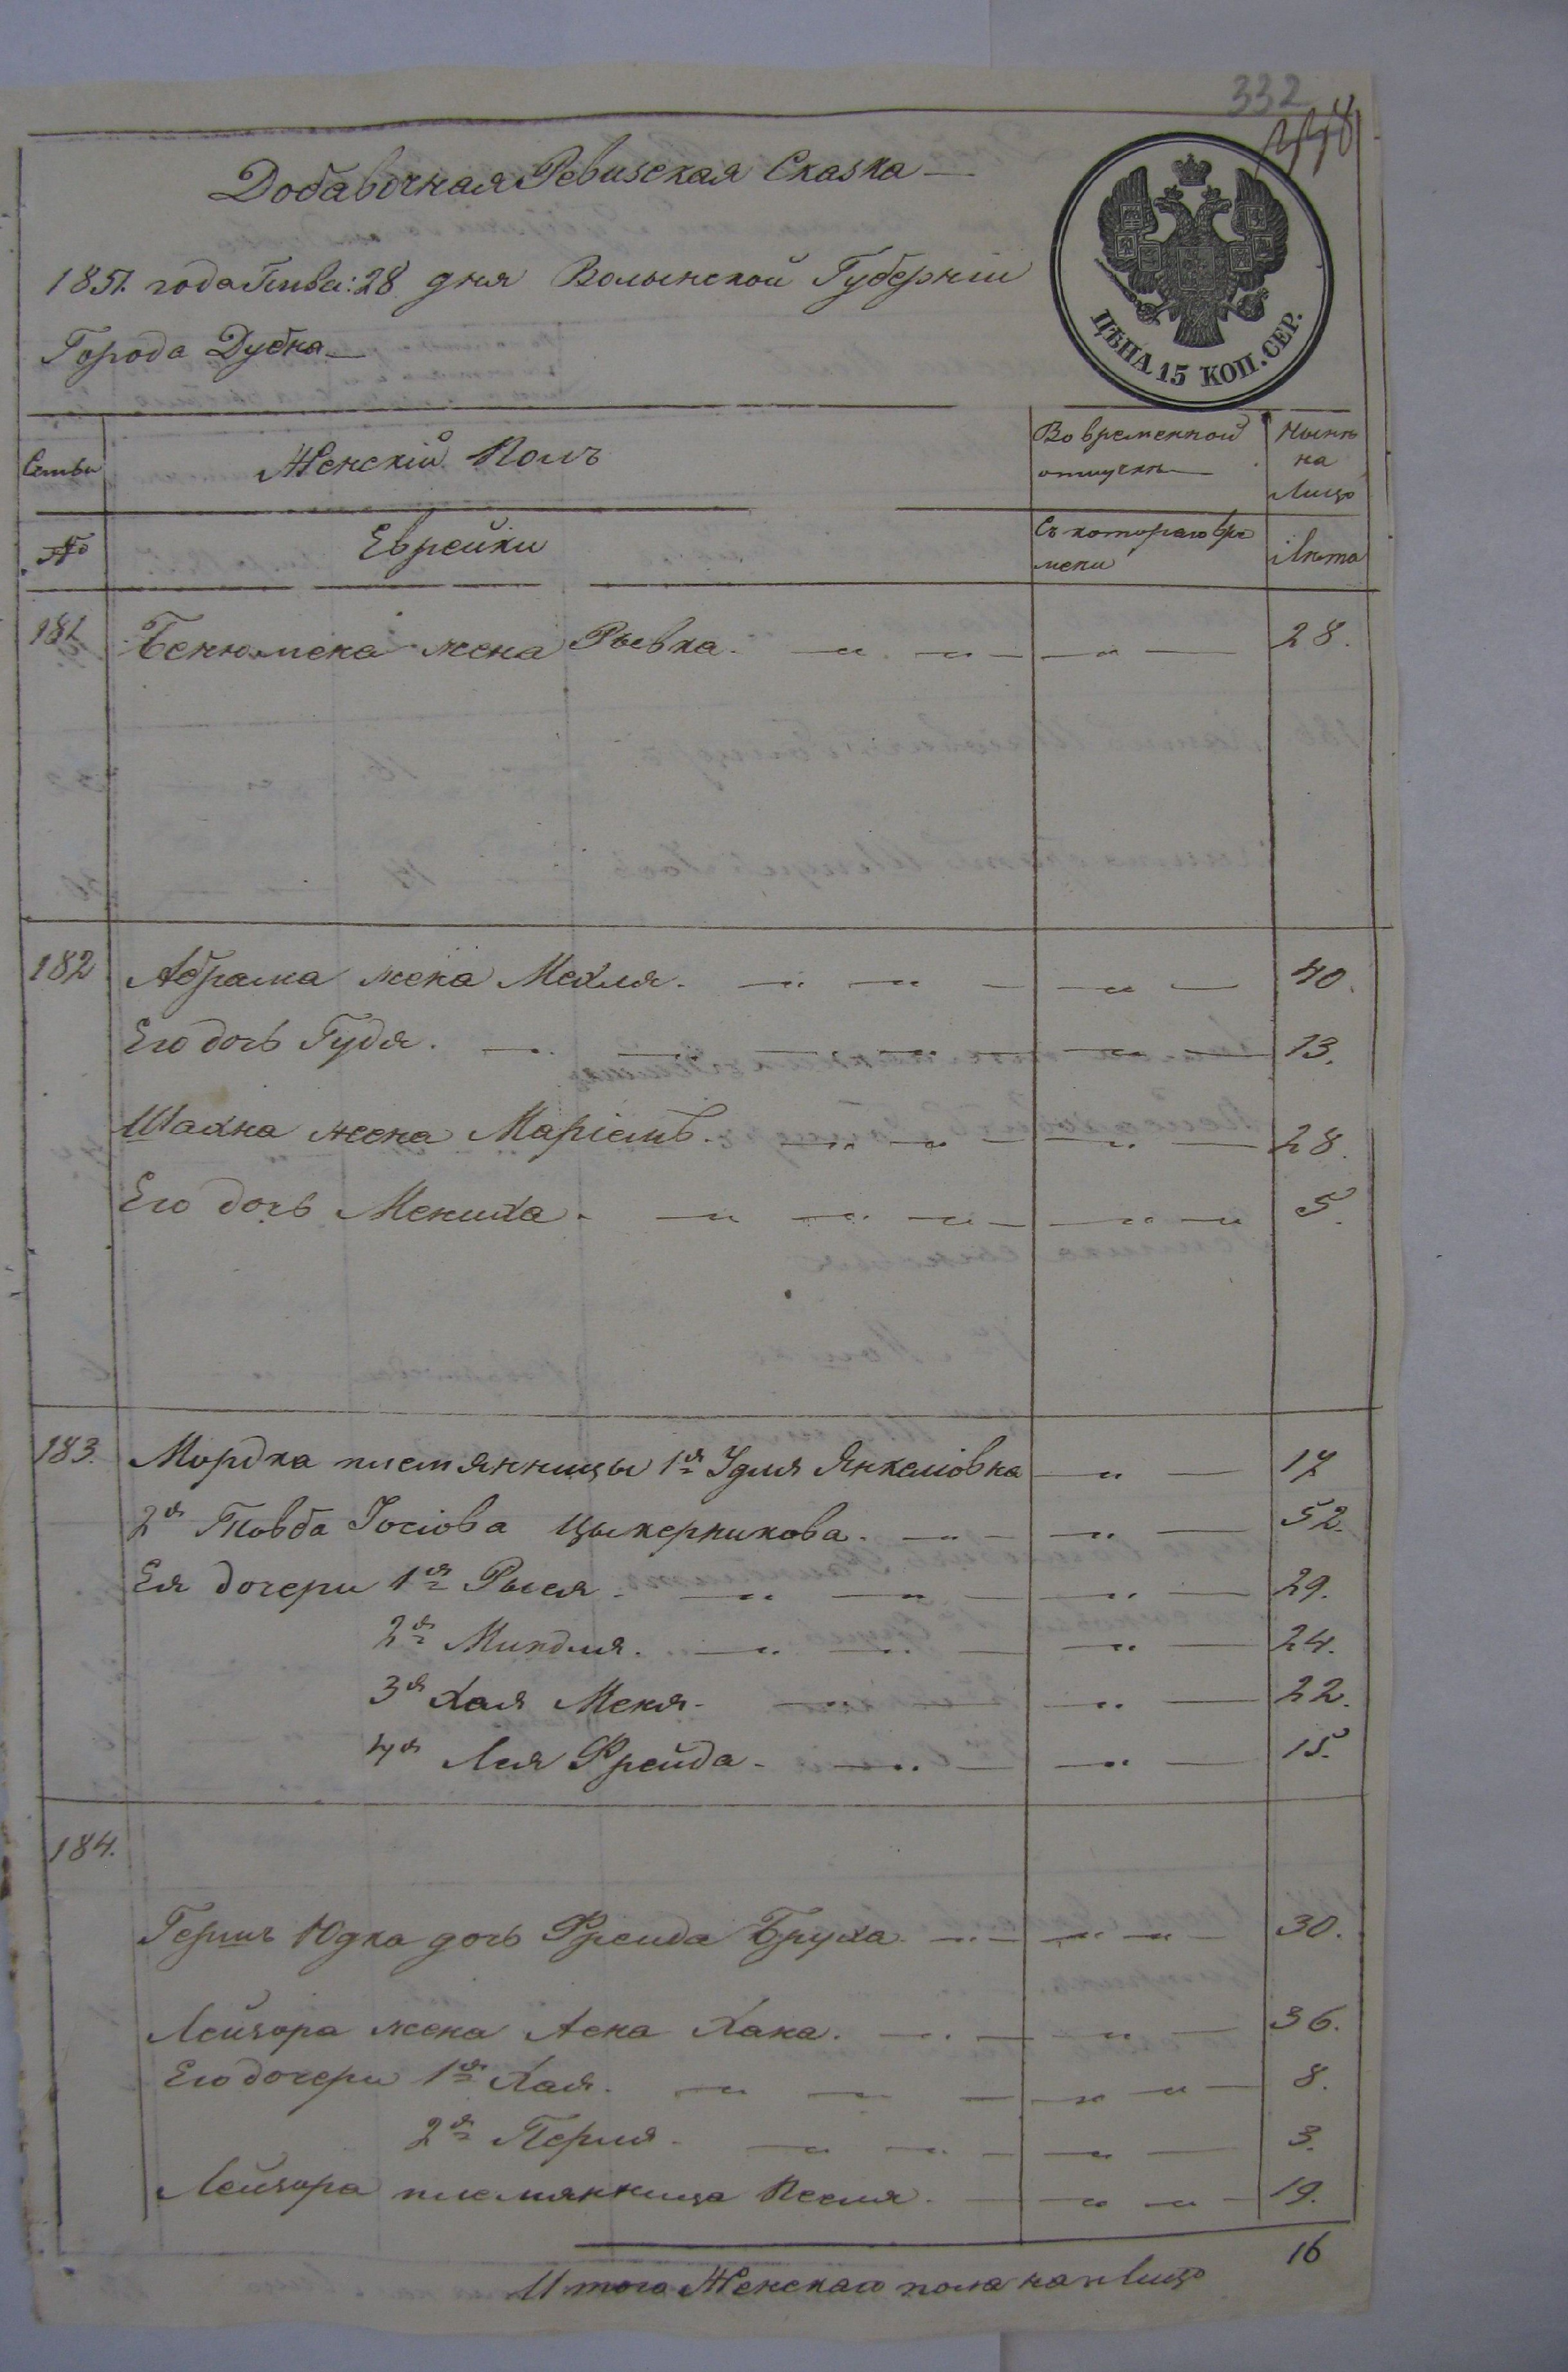 332
Добавочная Ревизская Сказка
1851 года Генва: 28 дня Волынской Губерніи
Города Дубна
ЦѢНА 15 КОП. СЕР.
Семьи Женскій Полъ Во временной отлучкѣ Нынѣ на Лицо
№ Еврейки Съ котораго времени Лѣта
181 Бенюмена жена Рывка 28.
182 Абрама жена Махля 40.
Его дочь Гудя 13.
Шахна жена Маріемъ 28.
Его дочь Мениха 5.
183. Мордка племянницы 1я Удля Янкеліовна 17
2я Товба Іосіова Цыкерникова 52.
Ея дочери 1я Рыся 29.
2я Миндля 24.
3я Хая Меня 22.
4я Лея Фрейда 15.
184.
Гершъ Юдка дочь Фрейда Бруха 30.
Лейзора жена Асна Хана 36.
Его дочери 1я Хая 8.
2я Перля 3.
Лейзора племянница Песля 19.
Итого Женскаго пола на Лицо 16